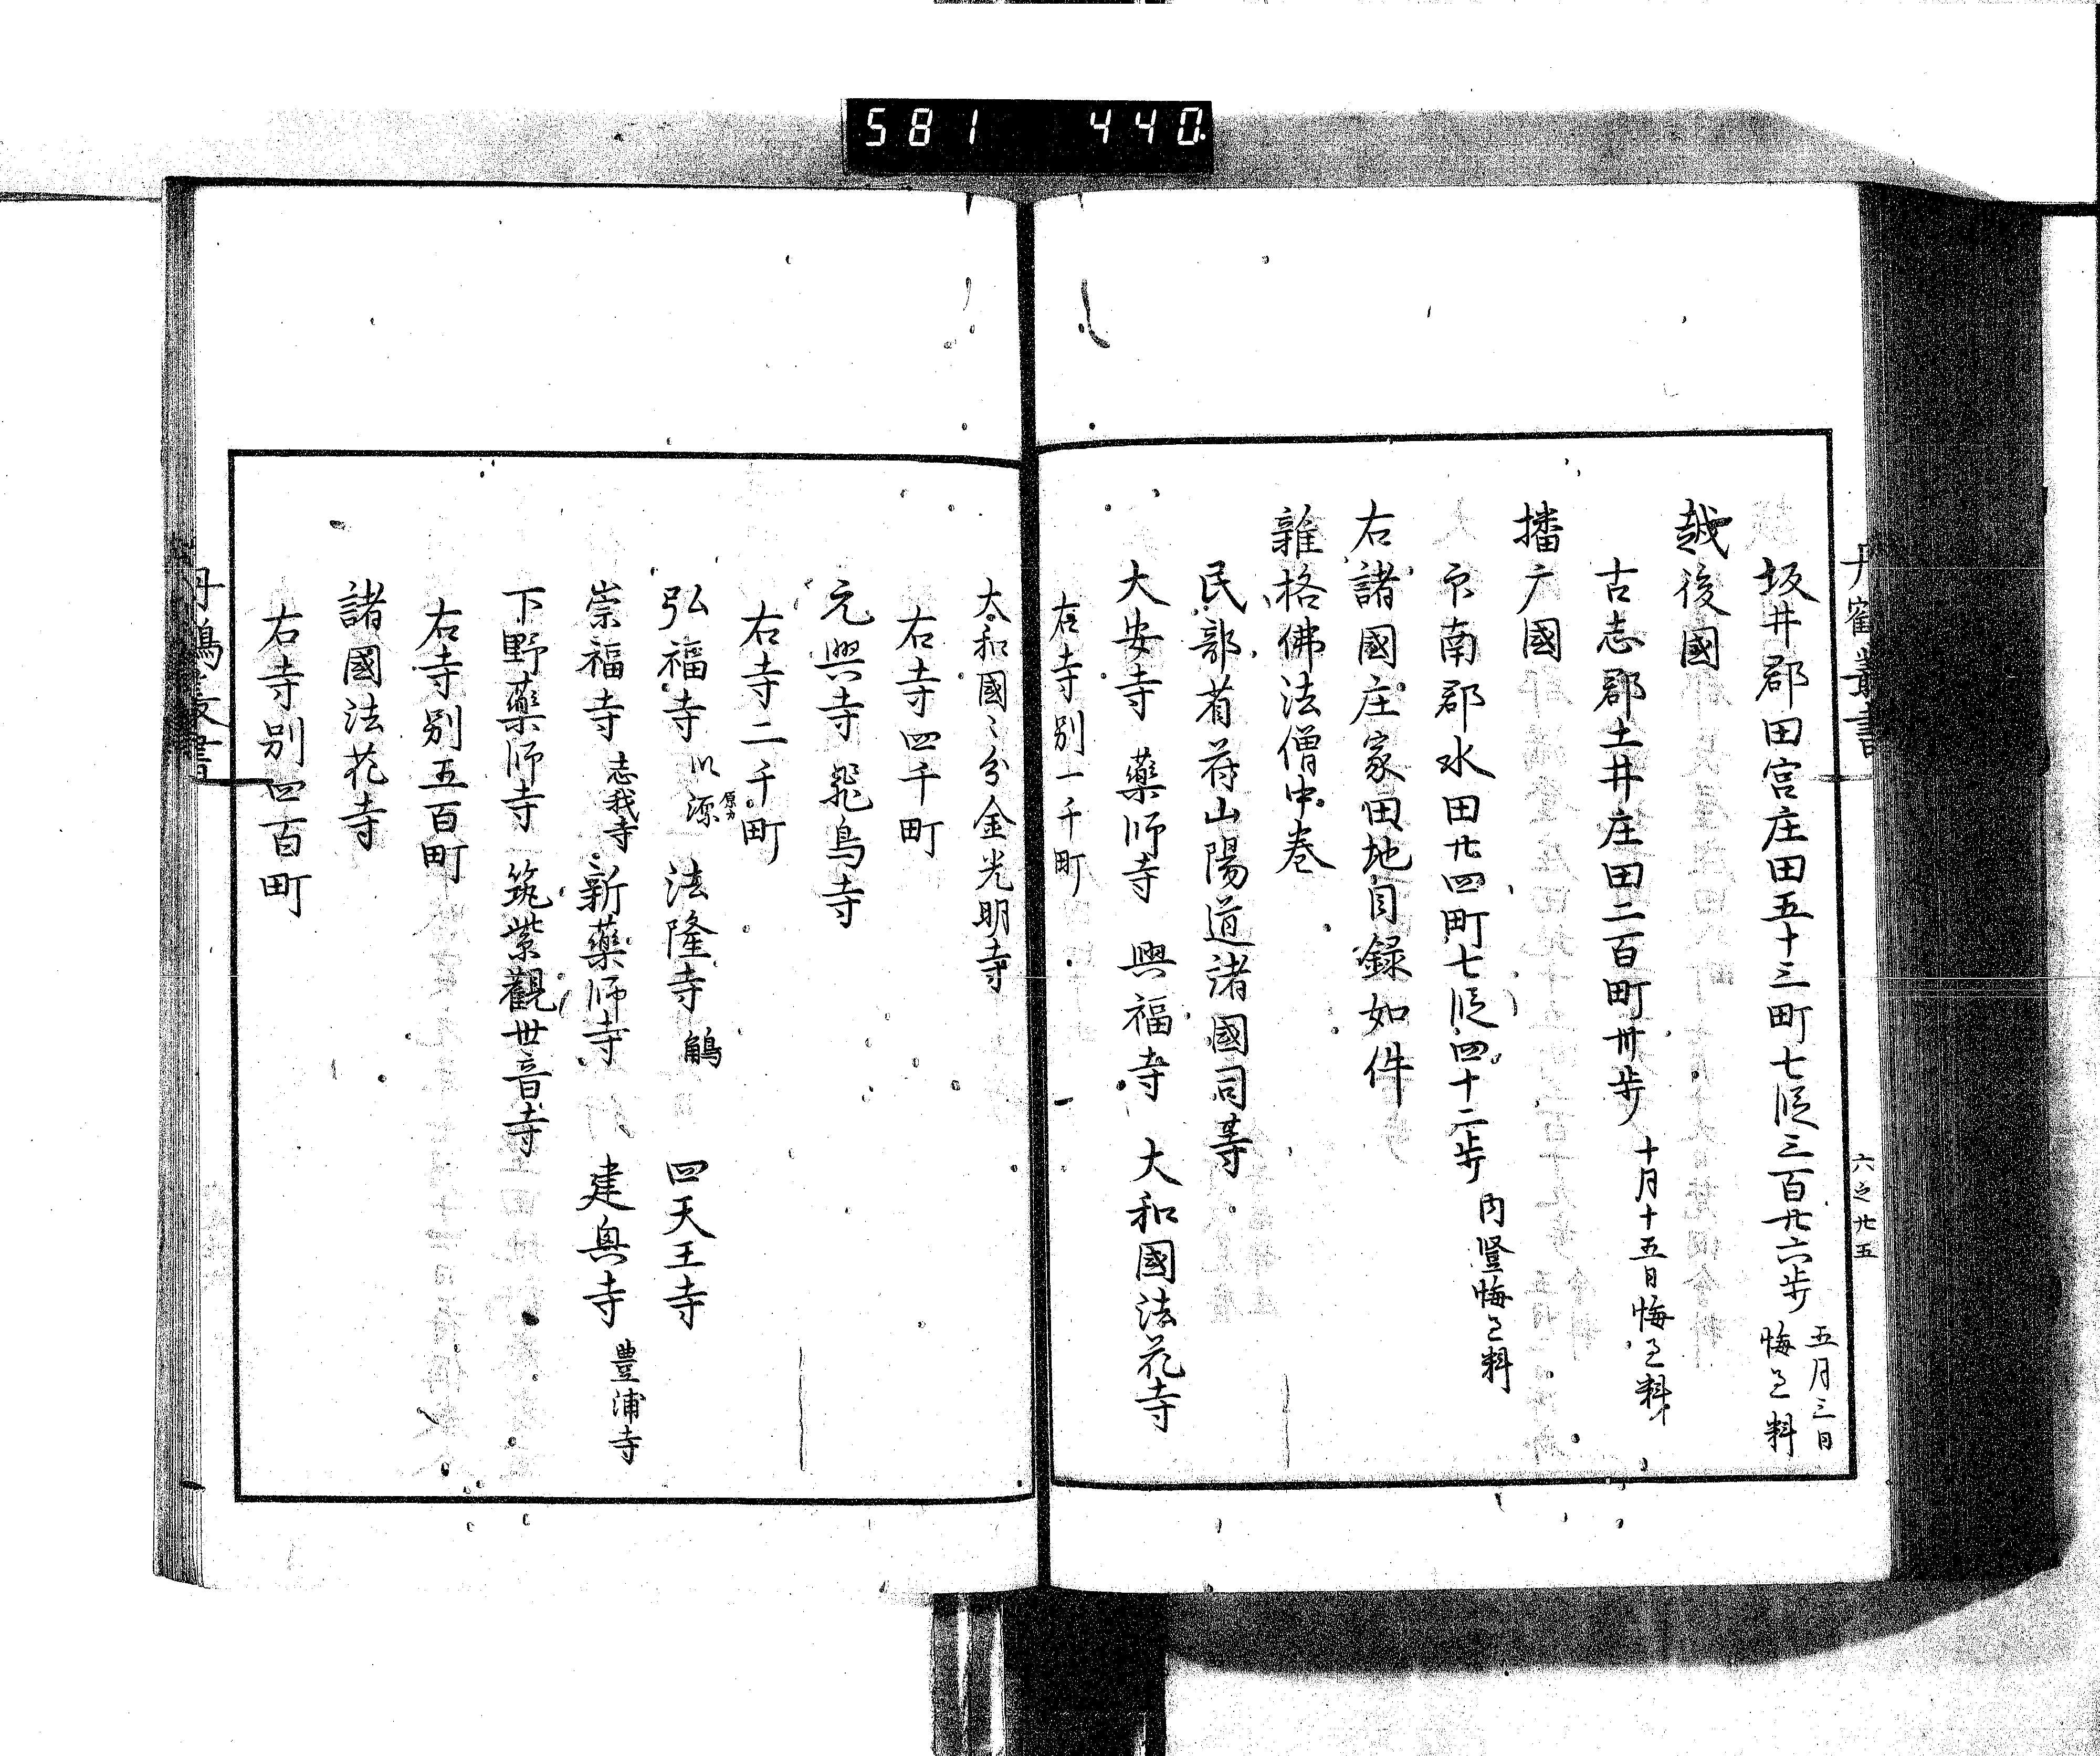 581 440
丹鶴叢書
六之廿五
坂井郡田宮庄田五十三町七段三百廿六歩 五月三日
悔過料
越後國
古志郡土井庄田二百町卅歩 十月十五日悔過料
播广國
印南郡水田廿四町七段四十二歩 内竪悔過料
右諸國庄家田地目録如件
雜格佛法僧中卷
民部省符山陽道諸國司等
大安寺 藥師寺 興福寺 大和國法花寺
右寺別一千町
大和國〻分金光明寺
右寺四千町
元興寺 飛鳥寺
右寺二千町
弘福寺 法隆寺 四天王寺
崇福寺 志我寺 新藥師寺 建興寺 豊浦寺
下野藥師寺 筑紫觀世音寺
右寺別五百町
諸國法花寺
右寺別四百町
丹鶴叢書